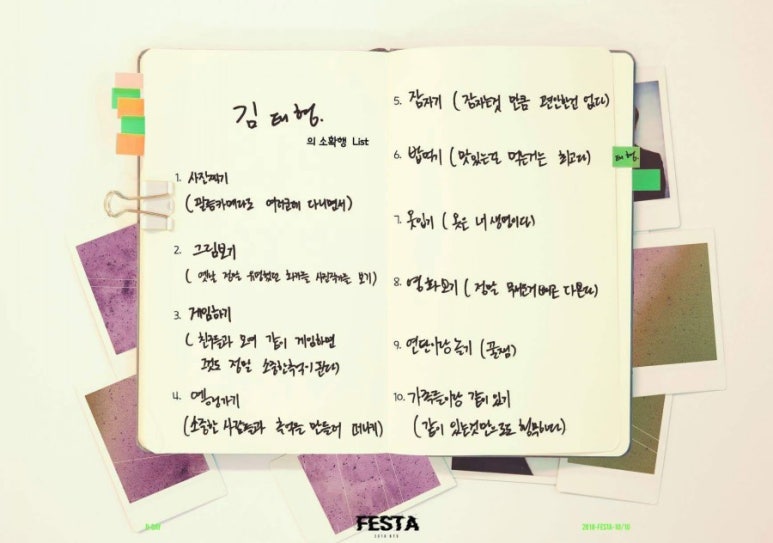 김태형.
의 소확행 List
1. 사진찍기
(필름카메라로 여러군데 다니면서)
2. 그림보기
(옛날 정말 유명했던 화가들 사진작가들 보기)
3. 게임하기
(친구들과 모여 같이 게임하면
그것도 정말 소중한추억이된다)
4. 여행가기
(소중한 사람들과 추억을 만들러 떠나기)
5. 잠자기 (잠자는것 만큼 편안한건 없다)
6. 밥먹기 (맛있는또 먹는거는 최고다)
7. 옷입기 (옷은 내 생명이다)
8. 영화보기 (정말 무서운거 빼고 다본다)
9. 연탄이랑 놀기 (꿀잼)
10. 가족들이랑 같이 있기
(같이 있는것만으로도 행복하다)
태형.
FESTA
2018 BTS
D-DAY
2018-FESTA-10/10